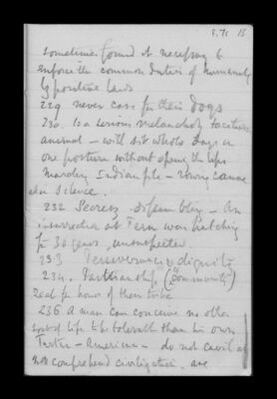 S. 71 15
sometimes found it necessary to
enforce the common duties of humanity
by positive laws
229 never cross for their dogs
230. Is a serious melancholy taciturn
animal – with sit whole days in
one posture without opening the lips
Indian file – rowing canoe
also silence.
232 Secrecy, Dissembling – An
insurrection at Peru was hatching
for 30 years, unsuspected
233 Perseverance, dignity
234. Partisanship (Community)
zeal for honor of their tribe
236 A man can conceive no other
sort of life to be tolerable than his own
Tartar – American – do not cavil at
not comprehend civilization. are